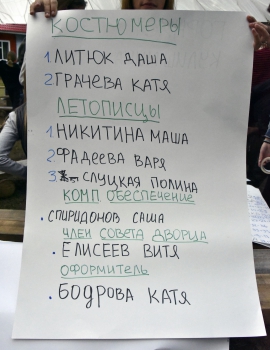 КОСТЮМЕРЫ
1 ЛИТЮК ДАША
2 ГРАЧЕВА КАТЯ
ЛЕТОПИСЦЫ
1 НИКИТИНА МАША
2 ФАДЕЕВА ВАРЯ
3. СЛУЦКАЯ ПОЛИНА
КОМП ОБЕСПЕЧЕНИЕ
. СПИРИДОНОВ САША
ЧЛЕН СОВЕТА ДВОРЦА
. ЕЛИСЕЕВ ВИТЯ
ОФОРМИТЕЛЬ
. БОДРОВА КАТЯ